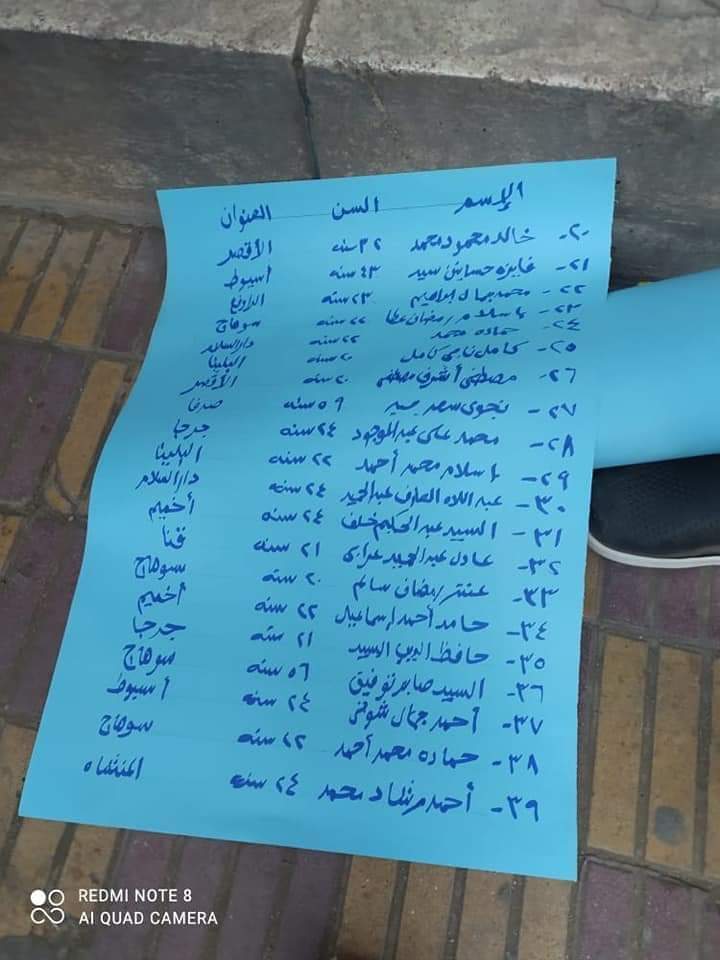 الإسم السن العنوان
٢٠- خالد محمود محمد ٣٢ سنه الأقصر
٢١- فايزه حسانين سيد ٤٣ سنه أسيوط
٢٢- محمد جمال ابراهيم ٢٣ سنه
٢٣- إسلام رمضان عطا ٢٢ سنه سوهاج
٢٤- حماده محمد ٢٢ سنه دار السلام
٢٥- كامل ناجى كامل ٢٠ سنه البلينا
٢٦- مصطفى أشرف مصطفى ٢٠ سنه الأقصر
٢٧- نجوى سعد سيد ٥٩ سنه صدفا
٢٨- محمد على عبد الموجود ٢٤ سنه جرجا
٢٩- إسلام محمد أحمد ٢٢ سنه البلينا
٣٠- عبد اللاه العارف عبد الحميد ٢٤ سنه دار السلام
٣١- السيد عبد الحكيم خلف ٢٤ سنه أخميم
٣٢- عادل عبد الحميد عرابى ٢١ سنه قنا
٣٣- عنتر رمضان سالم ٢٠ سنه سوهاج
٣٤- حامد أحمد إسماعيل ٢٢ سنه أخميم
٣٥- حافظ السيد ٢١ سنه جرجا
٣٦- السيد صابر توفيق ٥٦ سنه سوهاج
٣٧- أحمد جمال شوقى ٢٤ سنه أسيوط
٣٨- حماده محمد أحمد ٢٢ سنه سوهاج
٣٩- أحمد رشاد محمد ٢٤ سنه المنشاه
REDMI NOTE 8
AI QUAD CAMERA